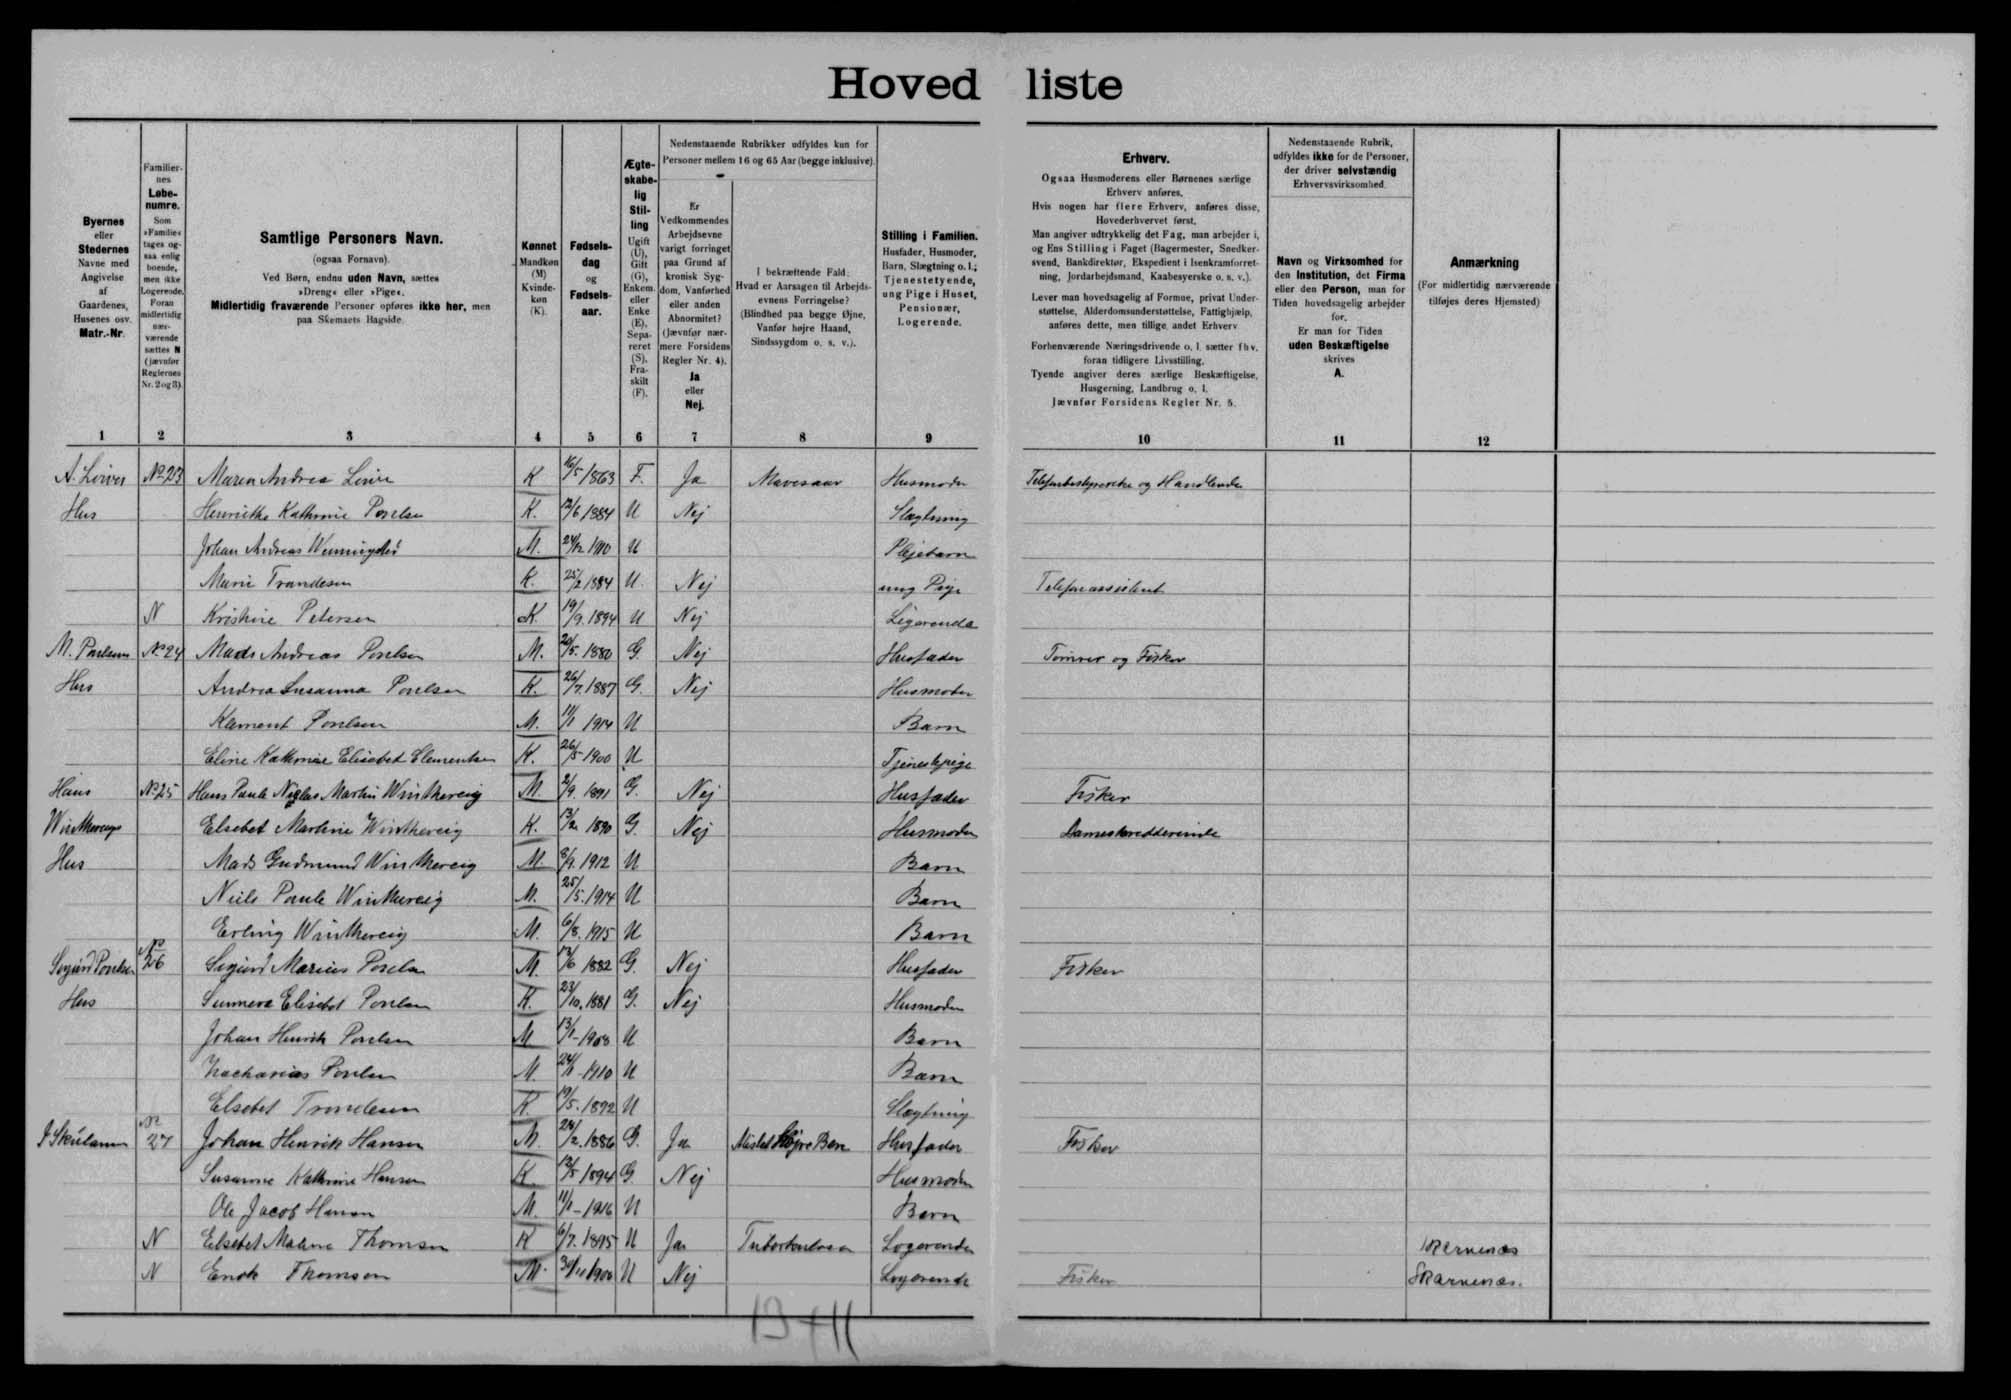 Hovedliste
Byernes eller Stedernes Navne med Angivelse af Gaardenes, Husenes osv. Matr.-Nr.
Familiernes Løbenumre. Som »Familie« tages ogsaa enlig boende, men ikke Logerende. Foran midlertidig nærværende sættes N (jævnfør Reglernes Nr. 2 og 3).
Samtlige Personers Navn. (ogsaa Fornavn). Ved Børn, endnu uden Navn, sættes »Dreng« eller »Pige«. Midlertidig fraværende Personer opføres ikke her, men paa Skemaets Bagside.
Kønnet Mandkøn (M) Kvindekøn (K).
Fødselsdag og Fødselsaar.
Ægteskabelig Stilling Ugift (U), Gift (G), Enkem. eller Enke (E), Separeret (S), Fraskilt (F).
Nedenstaaende Rubrikker udfyldes kun for Personer mellem 16 og 65 Aar (begge inklusive).
Er Vedkommendes Arbejdsevne varigt forringet paa Grund af kronisk Sygdom, Vanførhed eller anden Abnormitet? (Jævnfør nærmere Forsidens Regler Nr. 4). Ja eller Nej.
I bekræftende Fald: Hvad er Aarsagen til Arbejdsevnens Forringelse? (Blindhed paa begge Øjne, Vanfør højre Haand, Sindssygdom o. s. v.).
Stilling i Familien. Husfader, Husmoder, Barn, Slægtning o. l.; Tjenestetyende, ung Pige i Huset, Pensionær, Logerende.
Erhverv.
Ogsaa Husmoderens eller Børnenes særlige Erhverv anføres.
Hvis nogen har flere Erhverv, anføres disse, Hovederhvervet først.
Man angiver udtrykkelig det Fag, man arbejder i, og Ens Stilling i Faget (Bagermester, Snedkersvend, Bankdirektør, Ekspedient i Isenkramforretning, Jordarbejdsmand, Kaabesyerske o. s. v.).
Lever man hovedsagelig af Formue, privat Understøttelse, Alderdomsunderstøttelse, Fattighjælp, anføres dette, men tillige andet Erhverv
Forhenværende Næringsdrivende o. l. sætter fhv. foran tidligere Livsstilling.
Tyende angiver deres særlige Beskæftigelse, Husgerning, Landbrug o. l.
Jævnfør Forsidens Regler Nr. 5.
Nedenstaaende Rubrik, udfyldes ikke for de Personer, der driver selvstændig Erhvervsvirksomhed.
Navn og Virksomhed for den Institution, det Firma eller den Person, man for Tiden hovedsagelig arbejder for. Er man for Tiden uden Beskæftigelse skrives A.
Anmærkning (For midlertidig nærværende tilføjes deres Hjemsted)
1 2 3 4 5 6 7 8 9 10 11 12
No 23 Maren Andrea K 16/5 1863 F. Ja Mavesaar Husmoder og Handlende
Hus Henriette Kathrine Poulsen K. 1884 U Nej Slægtning
Johan Andreas M. 24/12 1910 U Plejebarn
Marie Trondesen K. 25/2 1884 U. Nej ung Pige Telefonassistent
N Kristine Petersen K. 19/9. 1894 U Nej Logerende
M. Poulsens No 24 Mads Andreas Poulsen M. 20/5. 1880 G. Nej Husfader Tømrer og Fisker
Hus Andrea Susanna Poulsen K. 26/7. 1887 G. Nej Husmoder
Klement Poulsen M. 11/1 1914 U Barn
Eline Kathrine Elisabet Clementsen K. 26/5 1900 U Tjenestepige
Hans No 25 Hans Paule Martin Winthereig M. 2/9. 1891 G. Nej Husfader Fisker
Winthereigs Elsebet Martine Winthereig K. 13/2 1890 G. Nej Husmoder Dameskrædderinde
Hus Mads Gudmund Winthereig M. 8/9. 1912 U Barn
Niels Paule Winthereig M. 25/5. 1914 U Barn
Erling Winthereig M. 6/8. 1915 U Barn
Sigurd Poulsen No 26 Sigurd Marius Poulsen M. 13/6 1882 G. Nej Husfader Fisker
Hus Sunneva Elisebet Poulsen K. 23/10. 1881 G. Nej Husmoder
Johan Henrik Poulsen M 13/1-1908 U Barn
Zacharias Poulsen M. 24/1-1910 U Barn
Elsebet Trondesen K. 19/5. 1892 U Slægtning
I Skúlanum No 27 Johan Henrik Hansen M. 28/2. 1886 G. Ja Mistet Højre Ben Husfader Fisker
Susanne Kathrine Hansen K. 12/5 1894 G. Nej Husmoder
Ole Jacob Hansen M. 11/1-1916 U Barn
N Elsebet Malene Thomsen K 6/7. 1895 U Ja Tuberkulose Logerende Skarnenæs
N Enok Thomsen M. 30/11 1900 U Nej Logerende Fisker Skarnenæs.
13+11